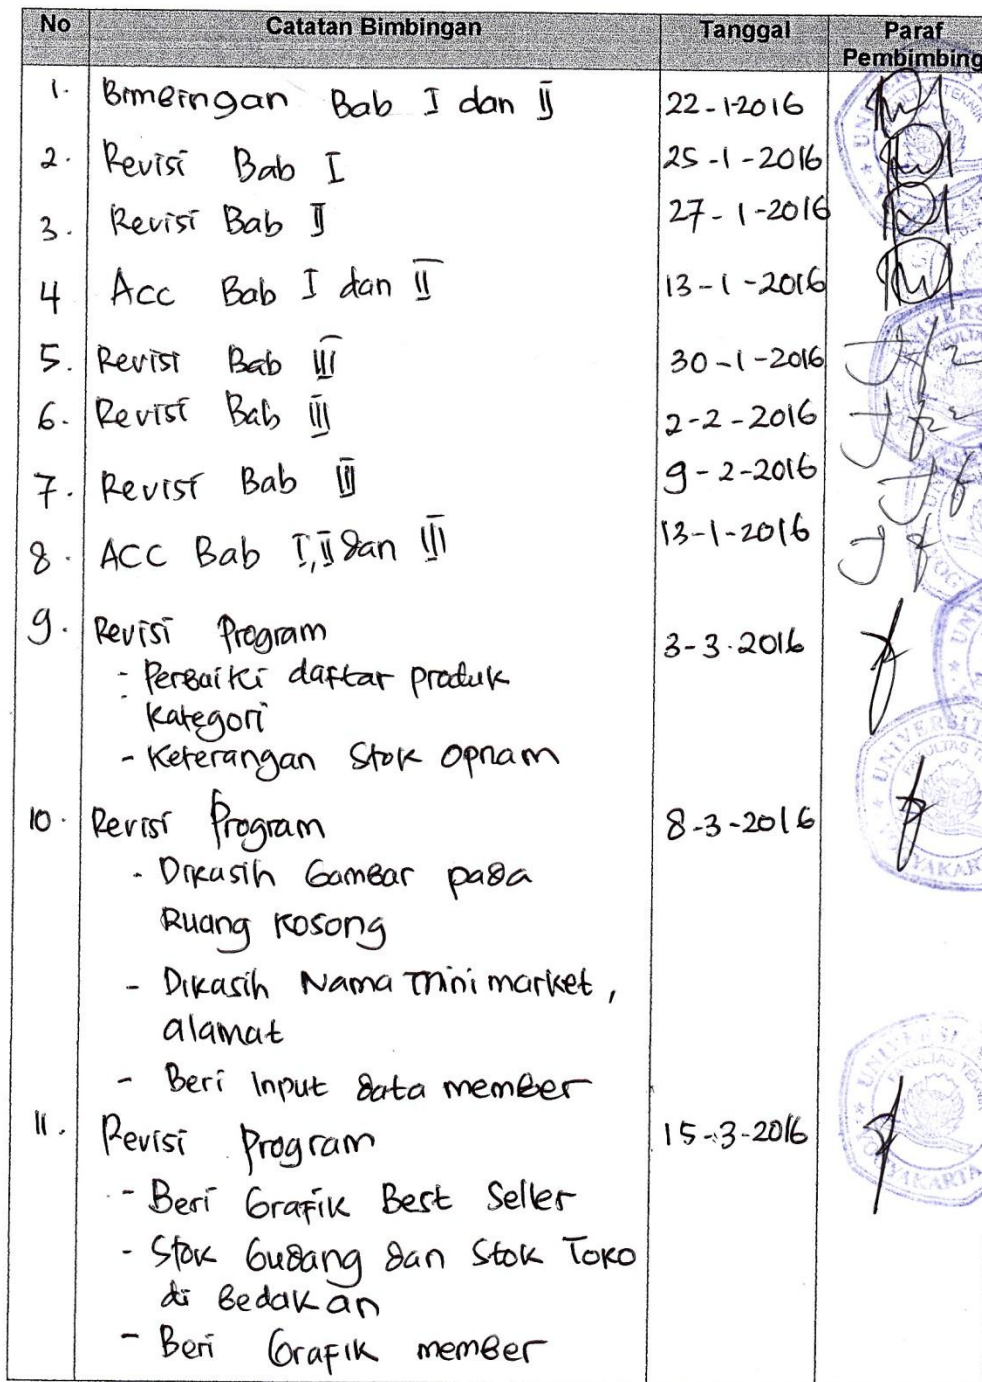 No Catatan Bimbingan Tanggal Paraf Pembimbing
1. Bimbingan Bab I dan II 22-1-2016
2. Revisi Bab I 25-1-2016
3. Revisi Bab II 27-1-2016
4 Acc Bab I dan II 13-1-2016
5. Revisi Bab III 30-1-2016
6. Revisi Bab III 2-2-2016
7. Revisi Bab III 9-2-2016
8. ACC Bab I, II dan III 13-1-2016
9. Revisi Program 3-3-2016
- Perbaiki daftar produk
kategori
- Keterangan Stok Opnam
10. Revisi Program 8-3-2016
- Dikasih Gambar pada
Ruang Kosong
- Dikasih Nama Mini market,
alamat
- Beri Input data member
11. Revisi Program 15-3-2016
- Beri Grafik Best Seller
- Stok Gudang dan Stok Toko
di Bedakan
- Beri Grafik member